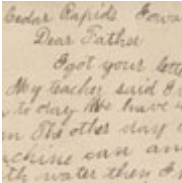 Cedar Rapids Iowa
Dear Father
I got your lette
My teacher said I
to day. We have
The other day
achine can an
th water then I